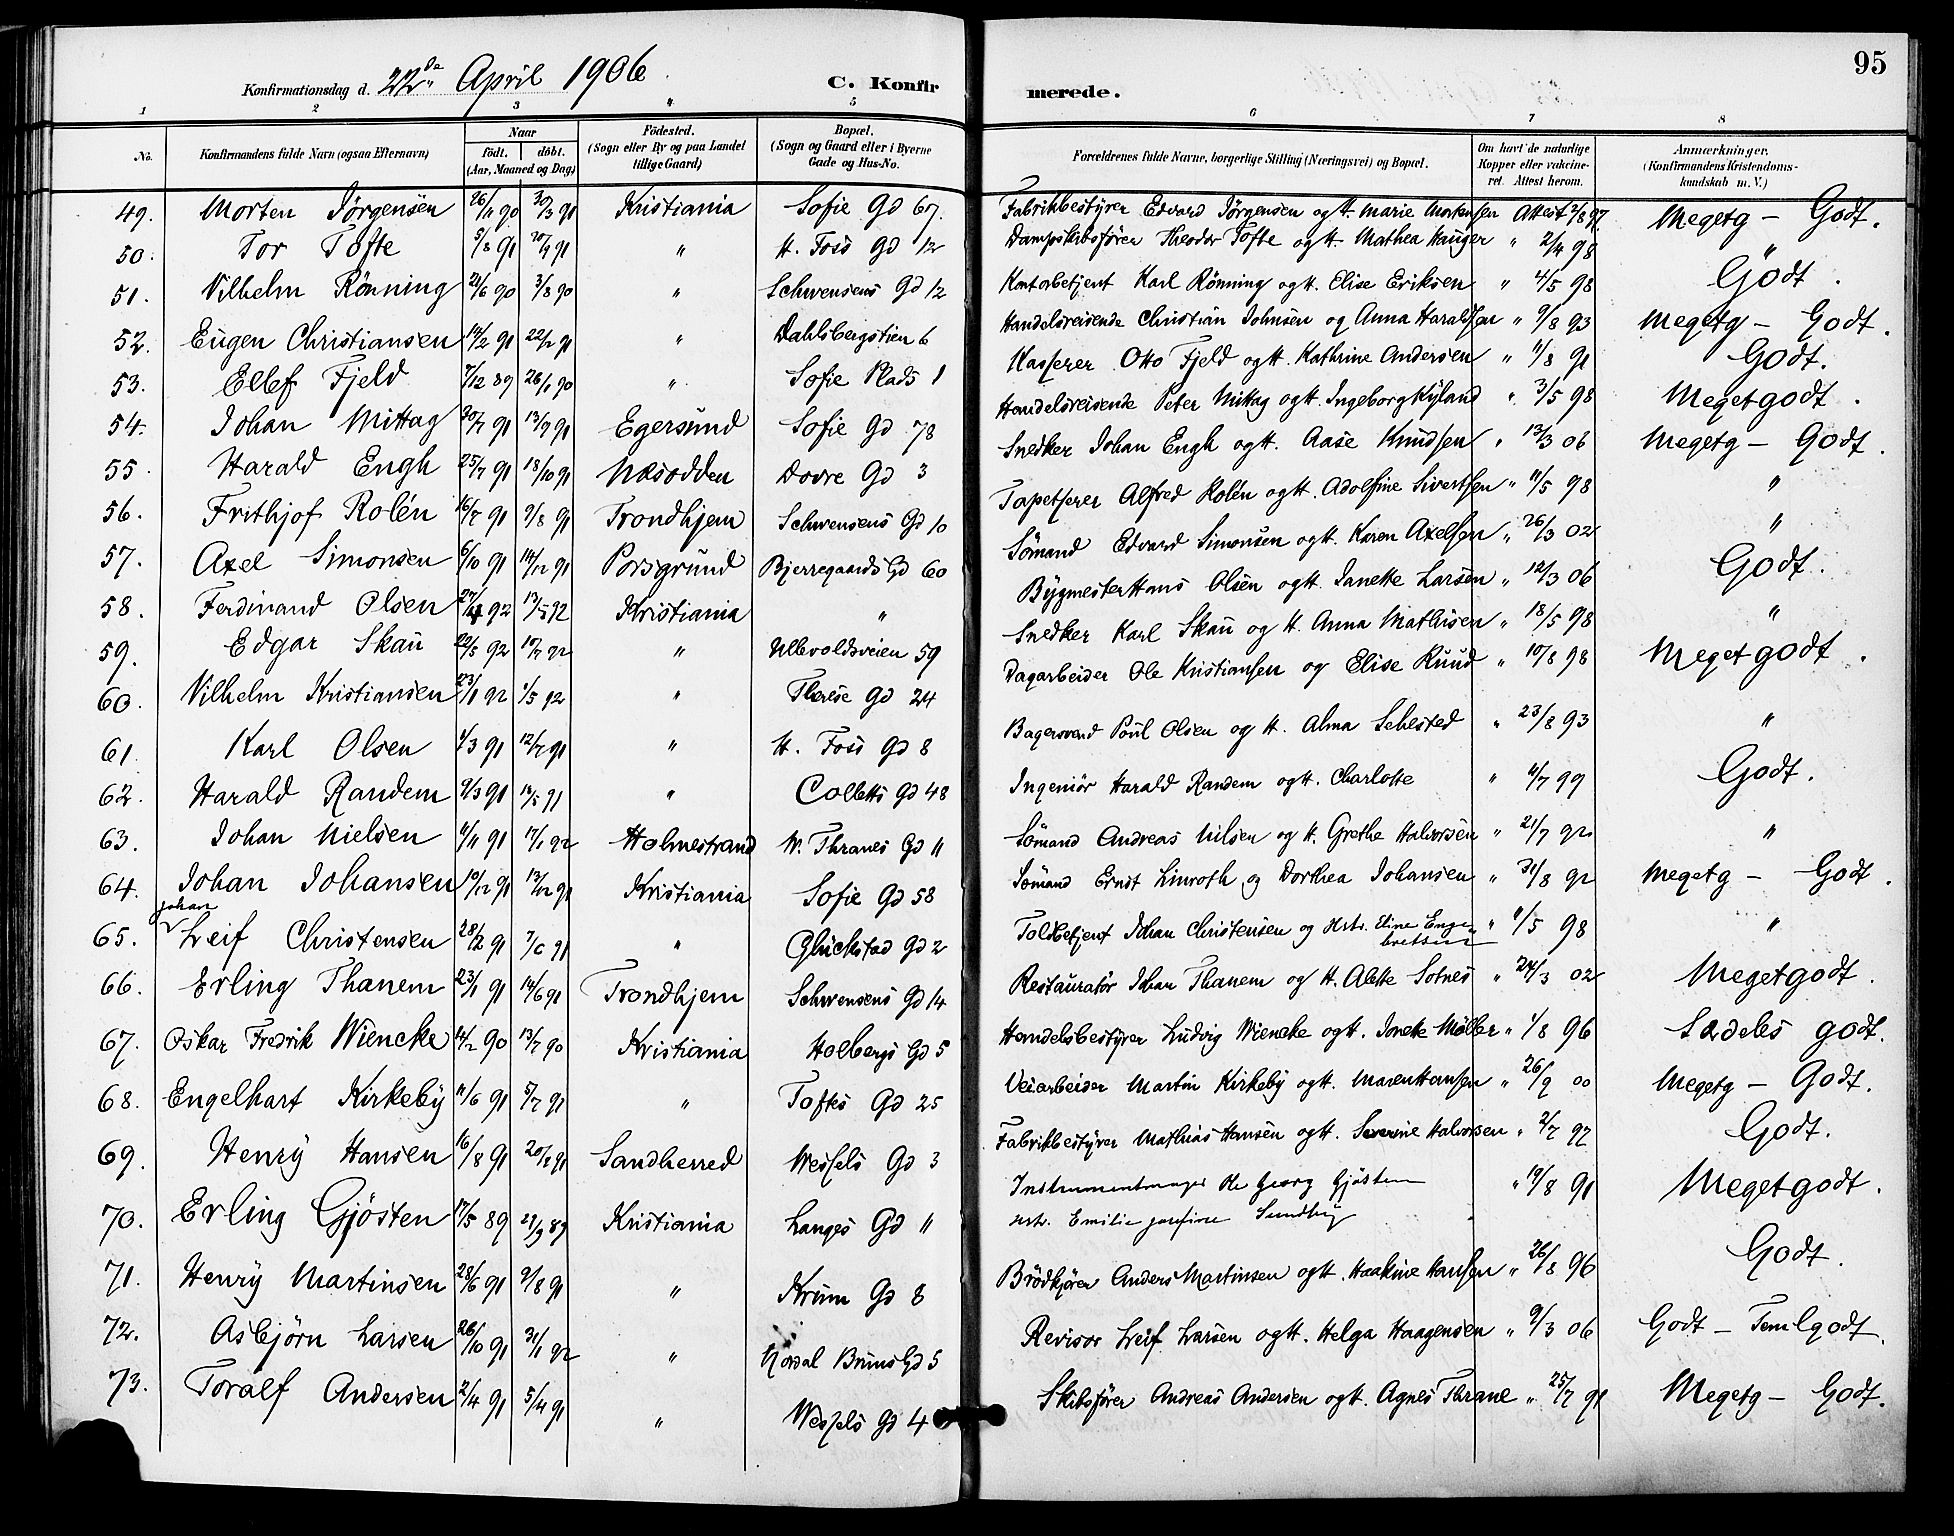 95
Konfirmationsdag d. 22de April 1906 C. Konfirmerede.
1 2 3 4 5 6 7 8
No. Konfirmandens fulde Navn (ogsaa Efternavn) Naar födt. döbt. (Aar, Maaned og Dag) Födested. (Sogn eller By og paa Landet tillige Gaard) Bopæl. (Sogn og Gaard eller i Byerne Gade og Hus-No. Forældrenes fulde Navne, borgerlige Stilling (Næringsvei) og Bopæl. Om havt de naturlige Kopper eller vakcineret. Attest herom. Anmærkninger. (Konfirmandens Kristendomskundskab m. V.)
49. Morten Jörgensen 26/11 90 30/3 91 Kristiania Sofie Gd 67. Fabrikbestyrer Edvard Jörgensen og H. Marie Mortensen Attest 2/8 97. Megetg – Godt.
50. Tor Tofte 5/8 91 20/9 91 " H. Foss Gd 12 Dampskibsförer Theodor Tofte og H. Mathea Hauger " 2/4 98 "
51. Vilhelm Rönning 21/6 90 3/8 90 " Schwensens Gd 12 Kontorbetjent Karl Rönning og H. Elise Eriksen " 4/5 98 Godt.
52. Eugen Christiansen 14/2 91 22/2 91 " Dahlsbergstien 6 Handelsreisende Christian Johnsen og Anna Haraldsen " 9/8 93 Megetg – Godt.
53. Ellef Fjeld 7/12 89 26/1 90 " Sofie Plads 1 Kasserer Otto Fjeld og H. Kathrine Andersen " 11/8 91 Godt.
54. Johan Mittag 20/7 91 13/9 91 Egersund Sofie Gd 78 Handelsreisende Peter Mittag og H. Ingeborg Kyland " 3/5 98 Megetgodt.
55. Harald Engh 25/7 91 18/10 91 Næsodden Dovre Gd 3 Snedker Johan Engh og H. Aase Knudsen " 13/3 06 Megetg – Godt.
56. Frithjof Rolén 16/7 91 9/8 91 Trondhjem Schwensens Gd 10 Tapetserer Alfred Rolén og H. Adolfine Sivertsen " 11/5 98 "
57. Axel Simonsen 6/10 91 14/12 91 Porsgrund Bjerregaards Gd 60 Sömand Edvard Simonsen og H. Karen Axelsen " 26/3 02 "
58. Ferdinand Olsen 27/4 92 13/5 92 Kristiania " Bygmester Hans Olsen og H. Janette Larsen " 12/3 06 Godt.
59. Edgar Skau 22/5 92 10/7 92 " Ullevoldsveien 59 Snedker Karl Skau og H. Anna Mathisen " 18/5 98 "
60. Vilhelm Kristiansen 23/1 92 1/5 92 " Therese Gd 24 Dagarbeider Ole Kristiansen og Elise Ruud " 10/8 98 Megetgodt.
61. Karl Olsen 1/3 91 12/7 91 " H. Foss Gd 8 Bagersvend Poul Olsen og H. Alma Sehested " 23/8 93 "
62. Harald Randem 9/3 91 19/5 91 " Colletts Gd 48 Ingeniör Harald Randem og H. Charlotte " 11/7 99 Godt.
63. Johan Nielsen 11/11 91 17/1 92 Holmestrand W. Thranes Gd 11 Sömand Andreas Nilsen og H. Grethe Halvorsen " 21/7 92 "
64. Johan Johansen 10/12 91 13/12 91 Kristiania Sofie Gd 58 Sömand Ernst Linroth og Dorthea Johansen " 31/8 92 Megetg – Godt.
Johan
65. Leif Christensen 28/2 91 7/6 91 " Glückstad Gd 2 Toldbetjent Johan Christensen og Hstr. Eline Engebretsen " 11/5 98 "
66. Erling Thanem 23/1 91 14/6 91 Trondhjem Schwensens Gd 14 Restauratör Johan Thanem og H. Alette Solnes " 24/3 02 Megetgodt.
67. Oskar Fredrik Wiencke 14/2 90 13/7 90 Kristiania Holbergs Gd 5 Handelsbestyrer Ludvig Wiencke og H. Janette Møller " 1/8 96 Særdeles godt.
68. Engelhart Kirkeby 11/6 91 5/7 91 " Toftes Gd 25 Veiarbeider Martin Kirkeby og H. Maren Hansen " 26/9 00 Megetg – Godt.
69. Henry Hansen 16/8 91 20/9 91 Sandherred Wessels Gd 3 Fabrikbestyrer Mathias Hansen og H. Severine Halvorsen " 2/7 97 Godt.
70. Erling Gjösten 17/5 89 29/9 89 Kristiania Langes Gd 11 Instrumentmager Ole Georg Gjösten " 19/8 91 Megetgodt.
Hstr. Emilie Josefine Sundby
71. Henry Martinsen 28/6 91 9/8 91 " Krum Gd 8 Brödkjörer Anders Martinsen og H. Haakine Hansen " 26/8 96 Godt.
72. Asbjörn Larsen 26/10 91 31/1 92 " Nordal Bruns Gd 5 Revisor Leif Larsen og H. Helga Haagensen " 9/3 06 Godt – Temlgodt.
73. Toralf Andersen 2/4 91 5/4 91 " Wessels Gd 4 Skibsförer Andreas Andersen og H. Agnes Thrane " 25/7 91 Megetg – Godt.